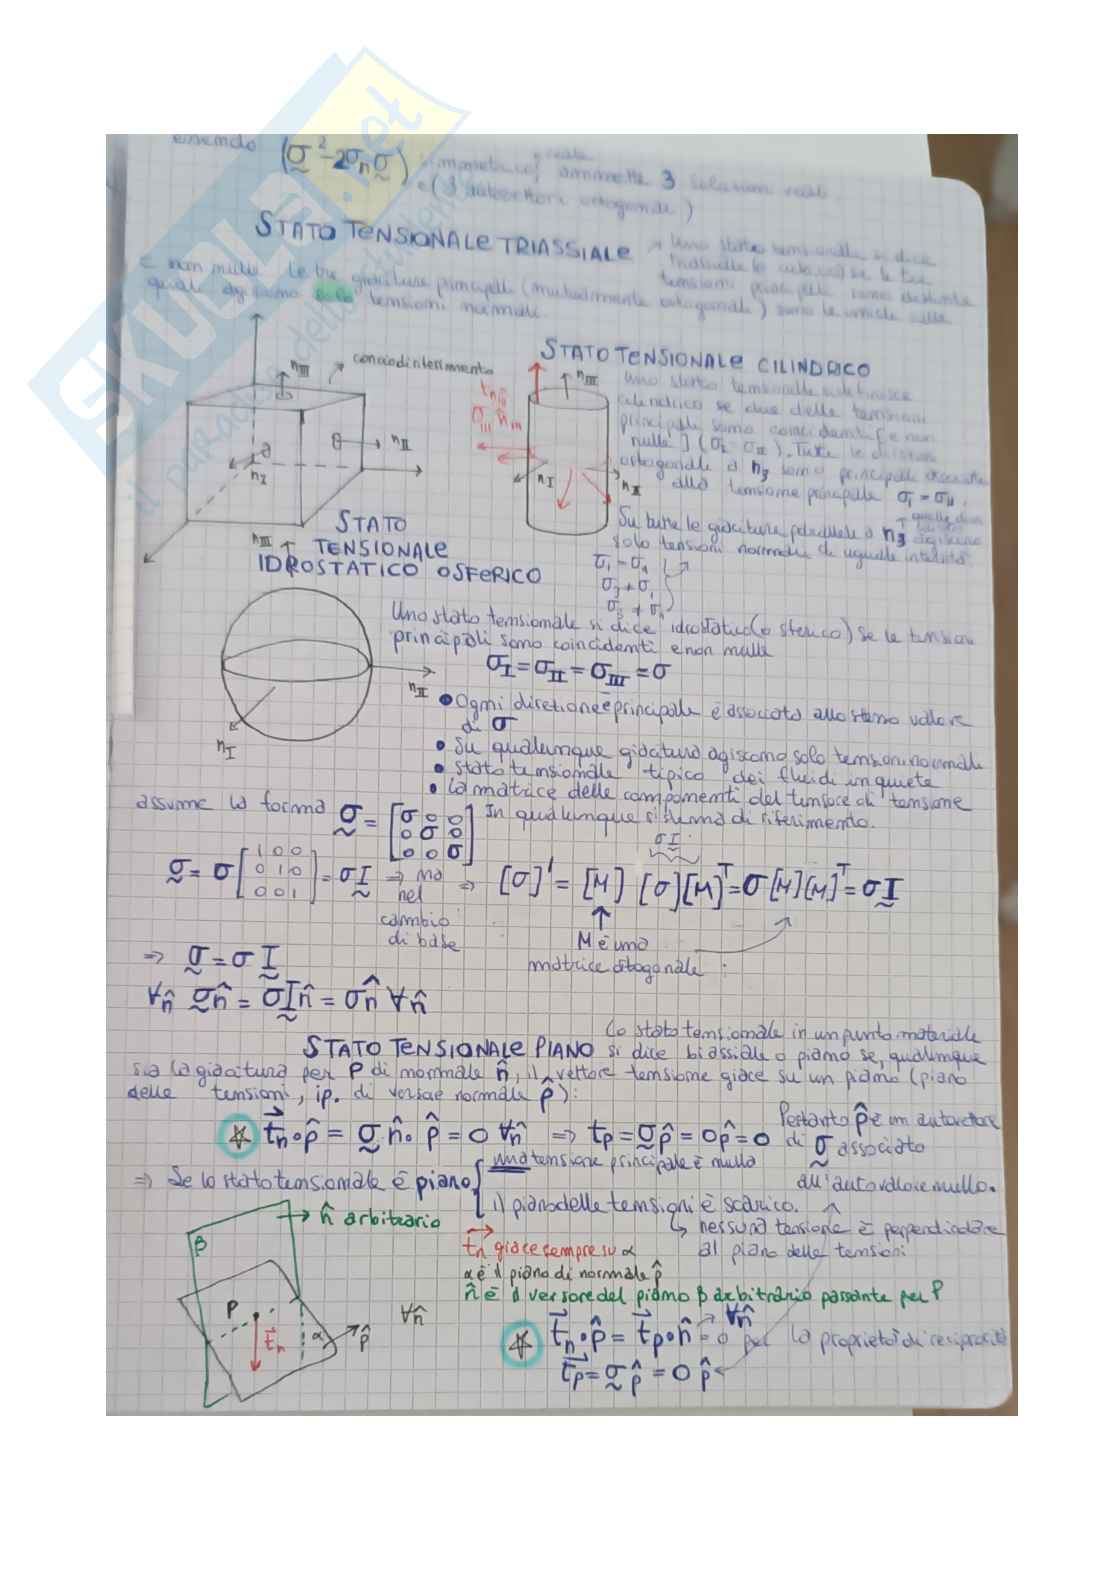 essendo (σ² - 2σnσ) simmetrico, ammette 3 soluzioni reali
(3 autovettori ortogonali)
STATO TENSIONALE TRIASSIALE → Uno stato tensionale si dice
triassiale se le tre
tensioni principali sono distinte
e non nulle. Le tre giaciture principali (mutualmente ortogonali) sono le uniche sulle
quali agiscono solo tensioni normali.
nIII
concio di riferimento
nII
nI
STATO TENSIONALE CILINDRICO
Uno stato tensionale si definisce
cilindrico se due delle tensioni
principali sono coincidenti [e non
nulle] (σI = σII). Tutte le direzioni
ortogonali a n3 sono principali associate
alla tensione principale σI = σII.
Su tutte le giaciture parallele a n3 agiscono
solo tensioni normali di uguale intensità.
nIII
σIII nIII
nI
nII
STATO
TENSIONALE
IDROSTATICO O SFERICO
nIII
nII
nI
Uno stato tensionale si dice idrostatico (o sferico) se le tensioni
principali sono coincidenti e non nulle
σI = σII = σIII = σ
• Ogni direzione è principale è associata allo stesso valore
di σ
• Su qualunque giacitura agiscono solo tensioni normali
• stato tensionale tipico dei fluidi in quiete
• La matrice delle componenti del tensore di tensione
assume la forma σ = [σ 0 0 0 σ 0 0 0 σ] In qualunque sistema di riferimento.
σ = σ [1 0 0 0 1 0 0 0 1] = σI ⇒ ma nel cambio di base ⇒ [σ]' = [M] [σ][M]ᵀ = σ[M][M]ᵀ = σI
σI
M è una
matrice ortogonale
⇒ σ = σ I
∀n̂ σn̂ = σIn̂ = σn̂ ∀n̂
STATO TENSIONALE PIANO Lo stato tensionale in un punto materiale
si dice biassiale o piano se, qualunque
sia la giacitura per P di normale n̂, il vettore tensione giace su un piano (piano
delle tensioni, ip. di versore normale p̂):
☆ tn • p̂ = σ n̂ • p̂ = 0 ∀n̂ ⇒ tp = σp̂ = 0p̂ = 0
Pertanto p̂ è un autovettore
di σ associato
all'autovalore nullo.
⇒ Se lo stato tensionale è piano { una tensione principale è nulla
il piano delle tensioni è scarico.
↳ nessuna tensione è perpendicolare
al piano delle tensioni
β
n̂ arbitrario
P
tn
α
p̂
∀n̂
tn giace sempre su α
α è il piano di normale p̂
n̂ è il versore del piano β arbitrario passante per P
☆ tn • p̂ = tp • n̂ = 0 ∀n̂ per la proprietà di reciprocità
tp = σ p̂ = 0 p̂
SKUOLA.net
il paradiso dello studente